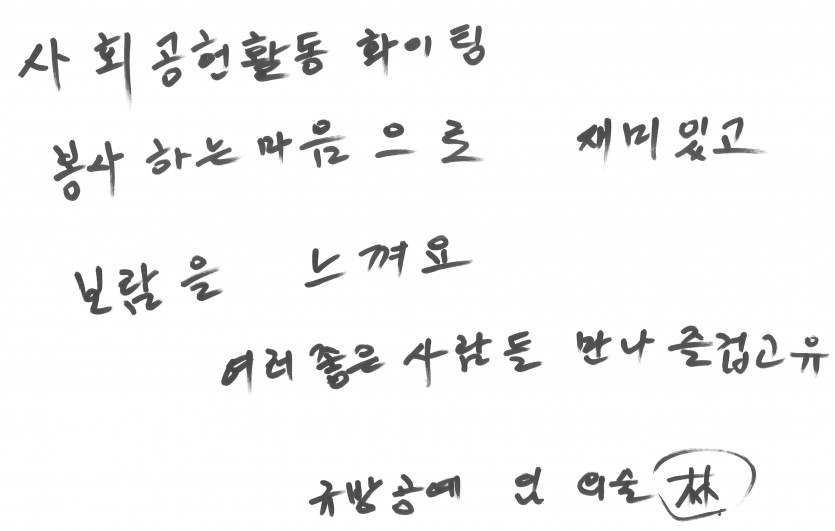 사회공헌활동 화이팅
봉사 하는 마음으로 재미있고
보람을 느껴요
여러좋은 사람들 만나 즐겁고유
규방공예 의술 林